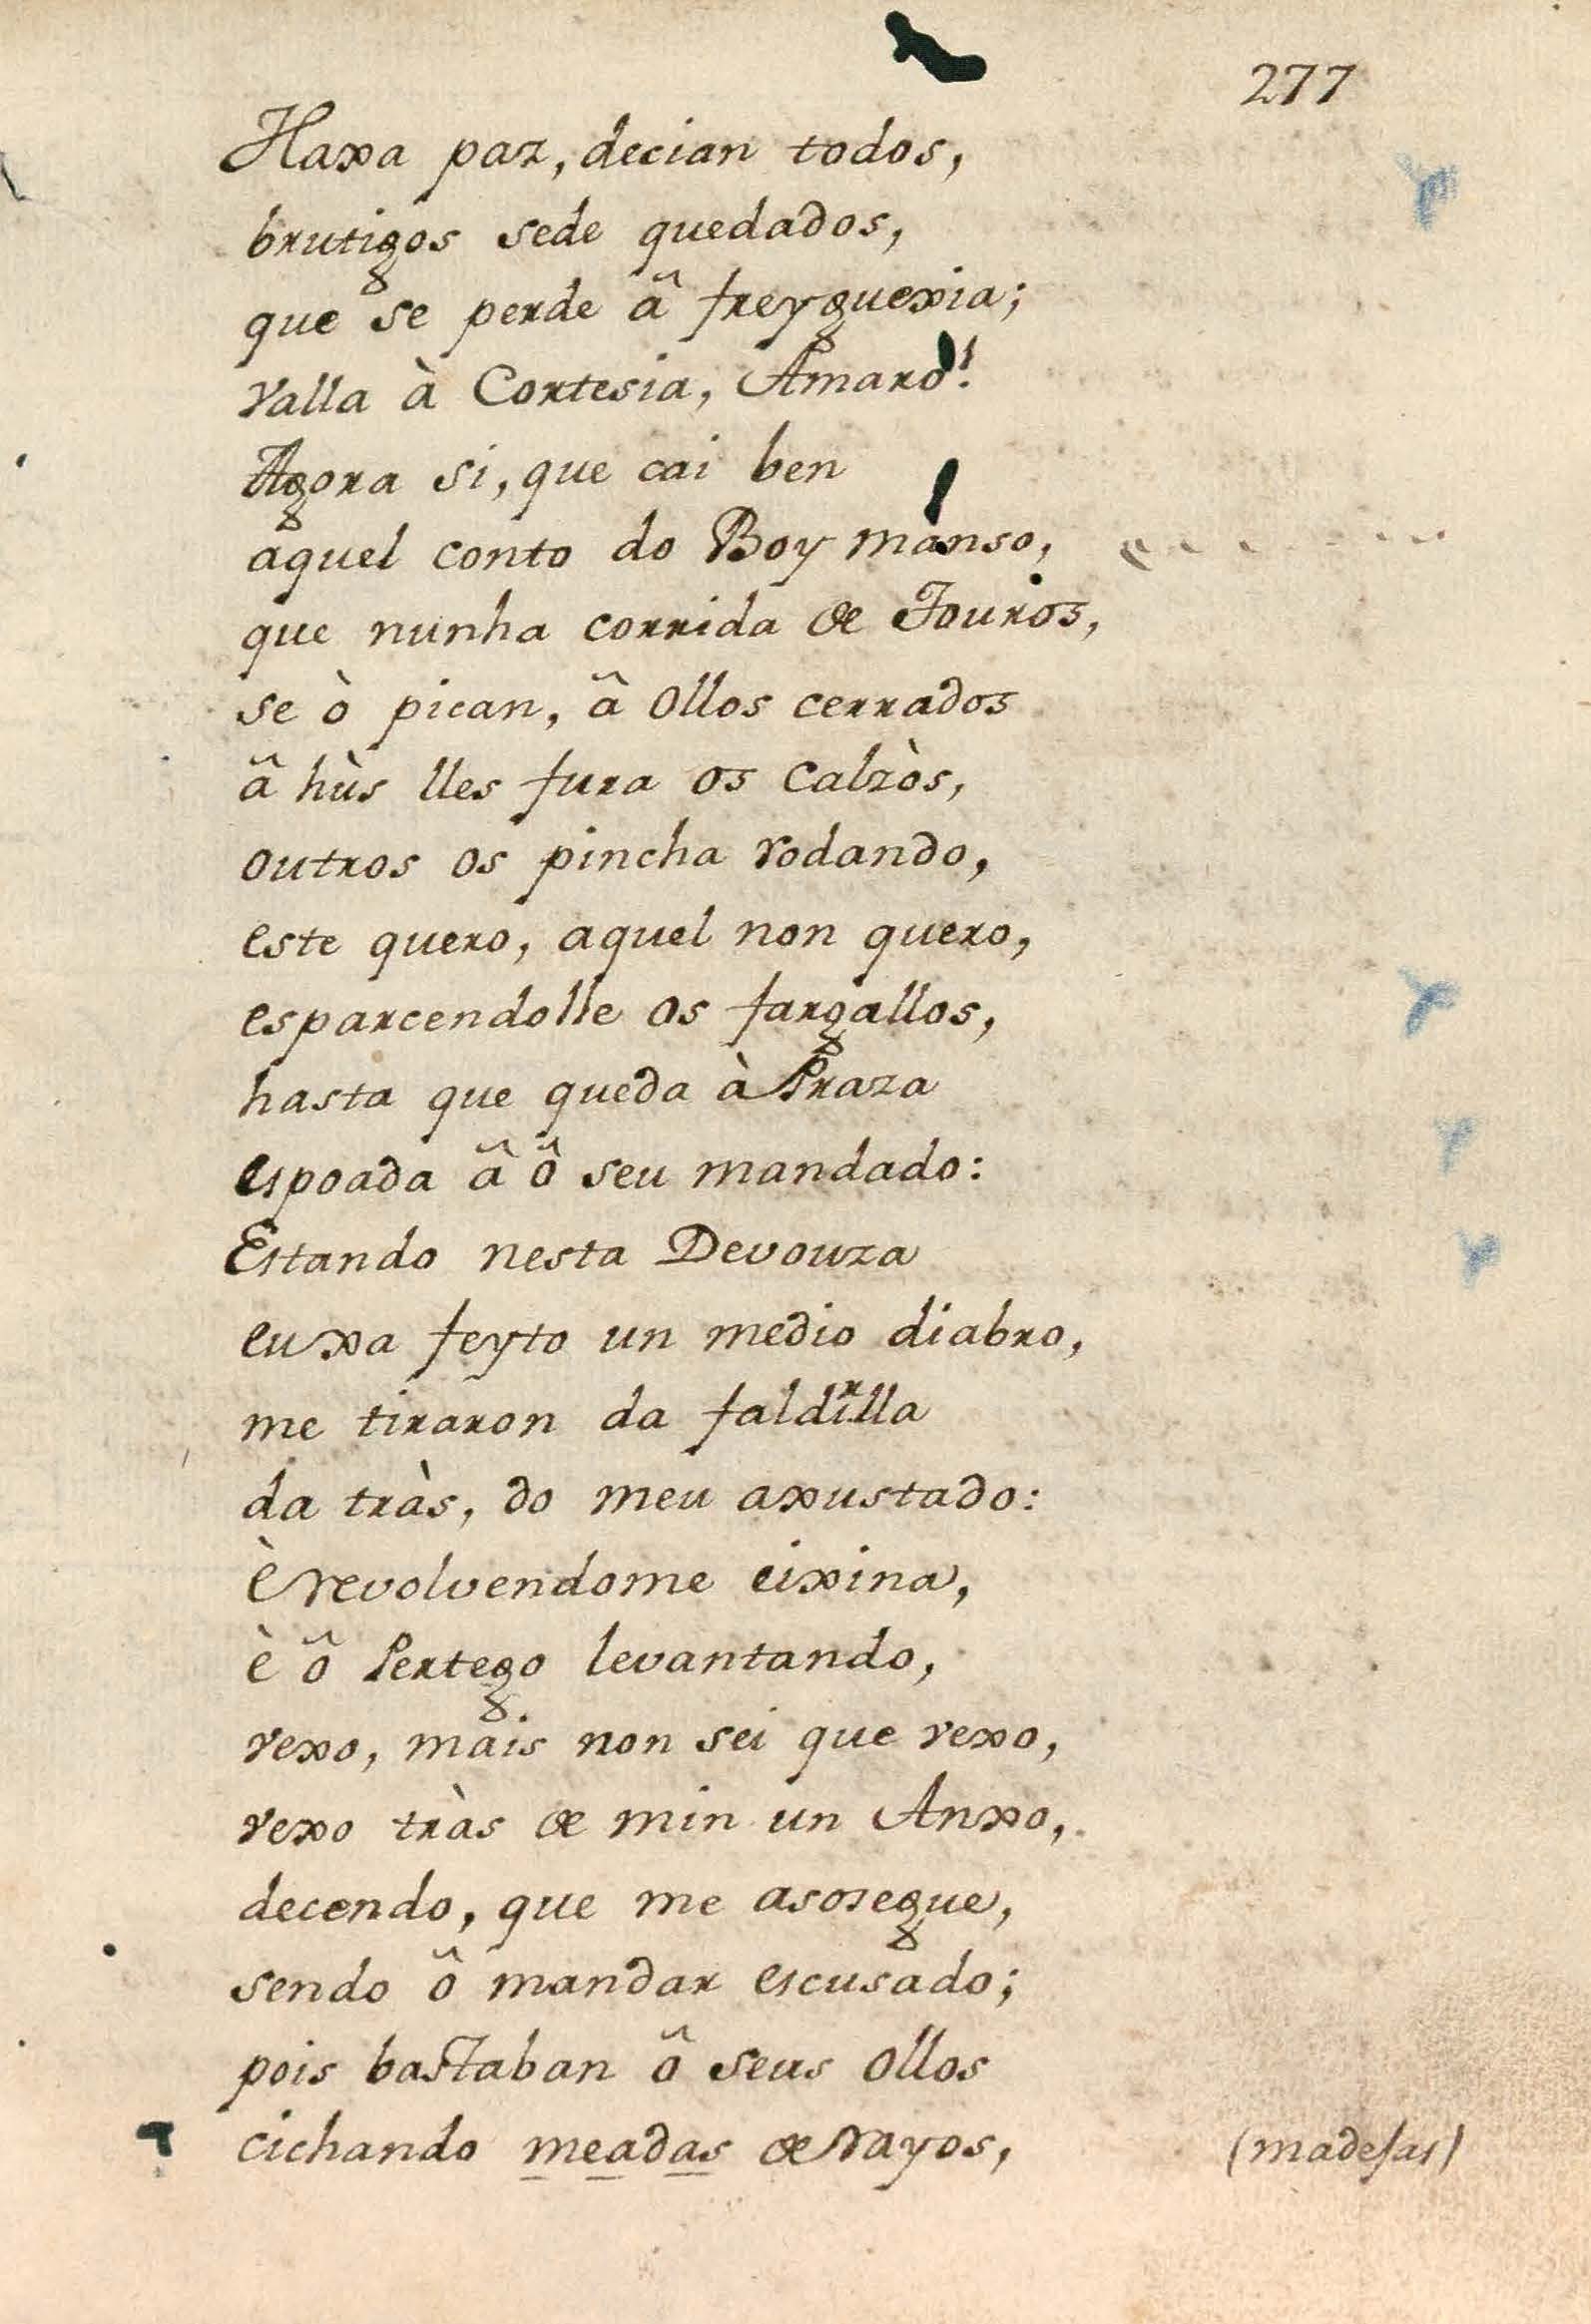 277
Haxa paz, decian todos,
brutigos sede quedados,
que se perde â freyguexia;
valla à Cortesia, Amaro!
Agora si, que cai ben
aquel conto do Boy manso,
que nunha corrida de Touros,
se ò pican, â ollos cerrados
â hùs lles fura os calzòs,
outros os pincha rodando,
este quero, aquel non quero,
esparcendolle os fargallos,
hasta que queda à Praza
espoada â ô seu mandado:
Estando nesta Devouza
eu xa feyto un medio diabro,
me tiraron da faldrilla
da tràs, do meu axustado:
è revolvendome eixina,
è ô Pertego levantando,
vexo, mais non sei que vexo,
vexo tràs de min un Anxo,
decendo, que me asosegue,
sendo ô mandar escusado;
pois bastaban ô seus ollos
cichando meadas de rayos,
(madejas)